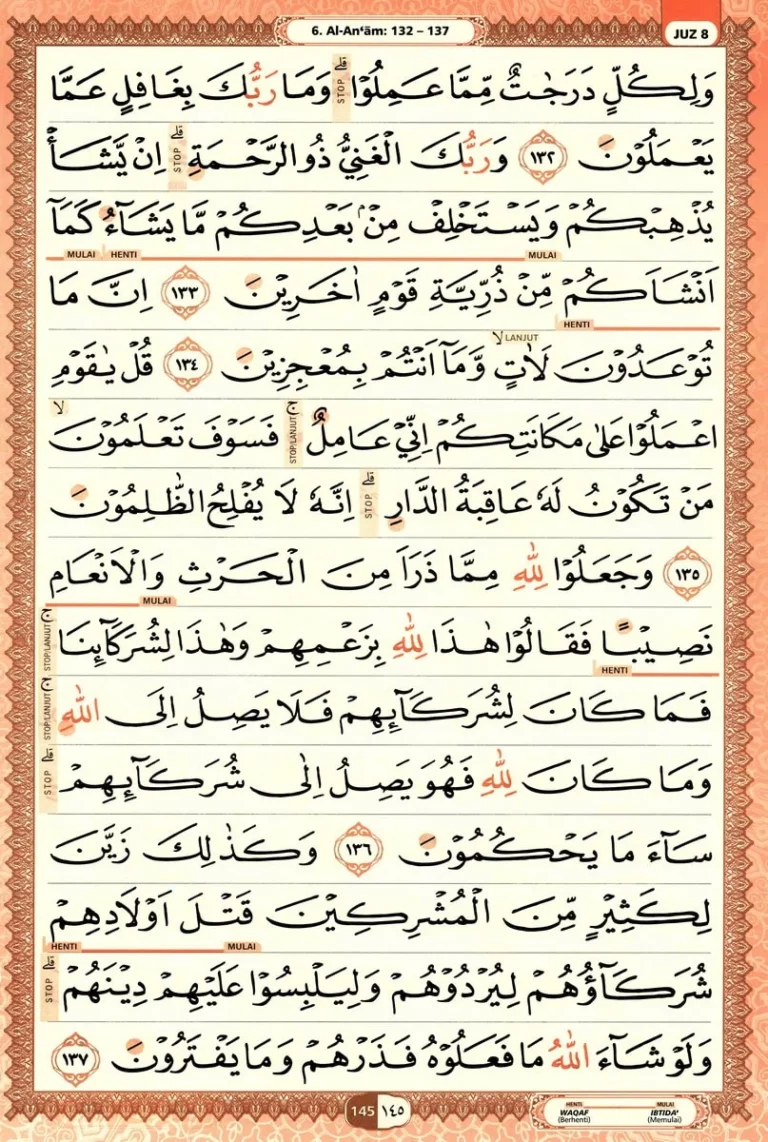 6. Al-An‘ām: 132 – 137
JUZ 8
وَلِكُلٍّ دَرَجٰتٌ مِّمَّا عَمِلُوْاۗ STOP وَمَا رَبُّكَ بِغَافِلٍ عَمَّا
يَعْمَلُوْنَ ١٣٢ وَرَبُّكَ الْغَنِيُّ ذُو الرَّحْمَةِۗ STOP اِنْ يَّشَأْ
يُذْهِبْكُمْ وَيَسْتَخْلِفْ مِنْۢ بَعْدِكُمْ مَّا يَشَاۤءُ كَمَآ
MULAI HENTI MULAI
اَنْشَاَكُمْ مِّنْ ذُرِّيَّةِ قَوْمٍ اٰخَرِيْنَ ١٣٣ اِنَّ مَا
HENTI
تُوْعَدُوْنَ لَاٰتٍۙ LANJUT وَّمَآ اَنْتُمْ بِمُعْجِزِيْنَ ١٣٤ قُلْ يٰقَوْمِ
اعْمَلُوْا عَلٰى مَكَانَتِكُمْ اِنِّيْ عَامِلٌۚ STOP/LANJUT فَسَوْفَ تَعْلَمُوْنَۙ
مَنْ تَكُوْنُ لَهٗ عَاقِبَةُ الدَّارِۗ STOP اِنَّهٗ لَا يُفْلِحُ الظّٰلِمُوْنَ
١٣٥ وَجَعَلُوْا لِلّٰهِ مِمَّا ذَرَاَ مِنَ الْحَرْثِ وَالْاَنْعَامِ
MULAI
نَصِيْبًا فَقَالُوْا هٰذَا لِلّٰهِ بِزَعْمِهِمْ وَهٰذَا لِشُرَكَاۤىِٕنَاۚ STOP/LANJUT
HENTI
فَمَا كَانَ لِشُرَكَاۤىِٕهِمْ فَلَا يَصِلُ اِلَى اللّٰهِۚ STOP/LANJUT
وَمَا كَانَ لِلّٰهِ فَهُوَ يَصِلُ اِلٰى شُرَكَاۤىِٕهِمْۗ STOP
سَاۤءَ مَا يَحْكُمُوْنَ ١٣٦ وَكَذٰلِكَ زَيَّنَ
لِكَثِيْرٍ مِّنَ الْمُشْرِكِيْنَ قَتْلَ اَوْلَادِهِمْ
HENTI MULAI
شُرَكَاۤؤُهُمْ لِيُرْدُوْهُمْ وَلِيَلْبِسُوْا عَلَيْهِمْ دِيْنَهُمْۗ STOP
وَلَوْ شَاۤءَ اللّٰهُ مَا فَعَلُوْهُ فَذَرْهُمْ وَمَا يَفْتَرُوْنَ ١٣٧
145 ١٤٥
HENTI MULAI
WAQAF IBTIDA’
(Berhenti) (Memulai)